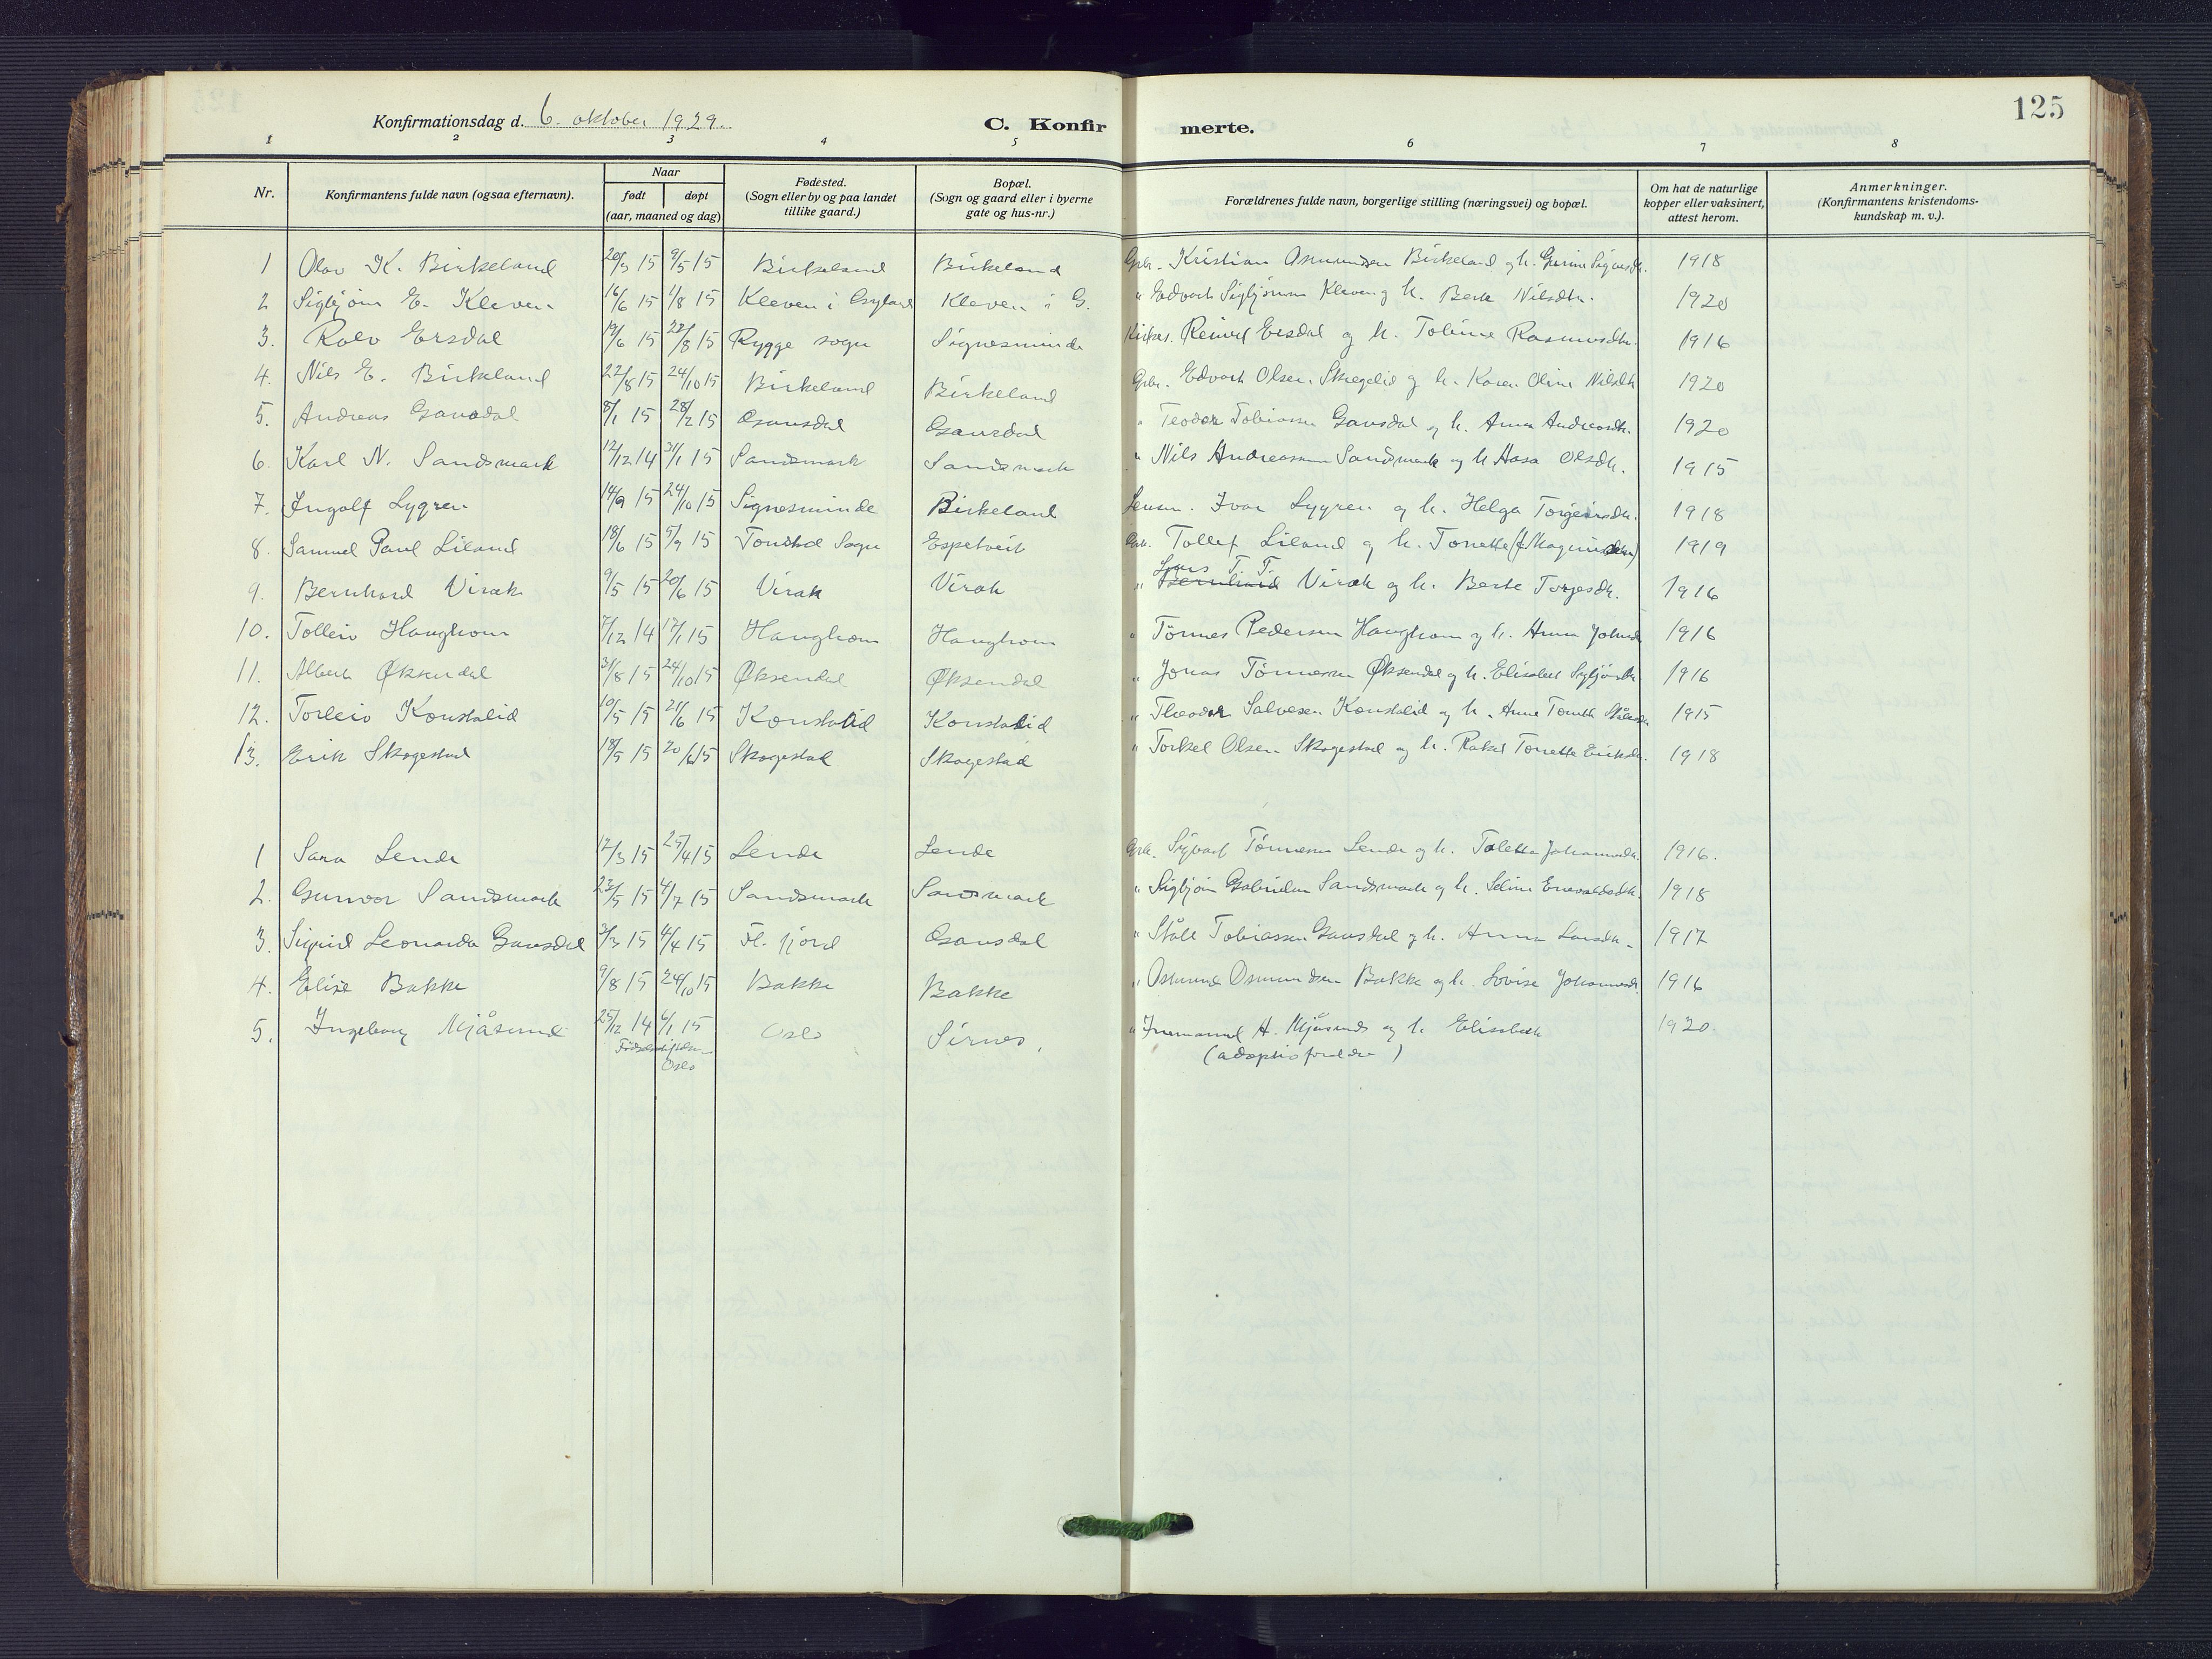 125
Konfirmationsdag d. 6. oktober 1929.
C. Konfir merte.
1 2 3 4 5 6 7 8
Nr.
Konfirmantens fulde navn (ogsaa efternavn).
Naar
født døpt
(aar, maaned og dag)
Fødested.
(Sogn eller by og paa landet
tillike gaard.)
Bopæl.
(Sogn og gaard eller i byerne
gate og hus-nr.)
Forældrenes fulde navn, borgerlige stilling (næringsvei) og bopæl.
Om hat de naturlige
kopper eller vaksinert,
attest herom.
Anmerkninger.
(Konfirmantens kristendoms-
kundskap m. v.).
1 Olav K. Birkeland 20/3 15 9/5 15 Birkeland Birkeland Gbr. Kristian Osmundsen Birkeland og h. Gurine Sigvesdtr. 1918
2 Sigbjørn E. Kleven 16/6 15 1/8 15 Kleven i Gyland Kleven i G. " Edvart Sigbjørnsen Kleven og h. Berte Nilsdtr. 1920
3. Rolv Ersdal 19/6 15 22/8 15 Rygge sogn Signesminde Kirkes. Reinert Ersdal og h. Toline Rasmusdtr. 1916
4. Nils E. Birkeland 22/8 15 24/10 15 Birkeland Birkeland Gbr. Edvart Olsen Skregelid og h. Karen Oline Nilsdtr 1920
5. Andreas Gausdal 8/1 15 28/2 15 Gausdal Gausdal " Teodor Tobiassen Gausdal og h. Anna Andreasdtr. 1920
6. Karl N. Sandsmark 12/12 14 31/1 15 Sandsmark Sandsmark " Nils Andreassen Sandsmark og h Aasa Olsdtr. 1915
7. Ingolf Lygren 14/9 15 24/10 15 Signesminde Birkeland Lensm. Ivar Lygren og h. Helga Torgeirsdtr. 1918
8. Samuel Paul Liland 18/6 15 5/9 15 Tonstad Sogn Espetveit Gbr. Tollef Liland og h. Tonette 1919
Lars T. T.
9. Bernhard Virak 9/5 15 20/6 15 Virak Virak " Bernhard Virak og h. Berte Torjesdtr. 1916
10. Tolleiv Haughom 7/12 14 17/1 15 Haughom Haughom " Tønnes Pedersen Haughom og h. Anna Johnsd 1916
11. Albert Øksendal 31/8 15 24/10 15 Øksendal Øksendal " Jonas Tønnessen Øksendal og h. Elisabet Sigbjørnsdtr 1916
12. Torleiv Konstalid 10/5 15 21/6 15 Konstalid Konstalid " Theodor Salvesen Konstalid og h. Anne Tomine Ståles 1915
13. Erik Skogestad 18/5 15 20/6 15 Skogestad Skogestad " Torkel Olsen Skogestad og h. Rakel Tonette Eriksdtr. 1918
1 Sara Lende 12/3 15 25/4 15 Lende Lende Gbr. Sigvart Tønnessen Lende og h. Talette Johannesdtr. 1916.
2. Gunvor Sandsmark 23/5 15 4/7 15 Sandsmark Sandsmark " Sigbjørn Gabrielsen Sandsmark og h. Seline Enevaldsdtr. 1918
3. Sigrid Leonarda Gausdal 3/3 15 4/4 15 Fl. fjord Gausdal " Ståle Tobiassen Gausdal og h. Anna Larsdtr. 1917
4. Elise Bakke 9/8 15 24/10 15 Bakke Bakke " Osmund Osmundsen Bakke og h. Lovise Johannesdt. 1916
5. Ingeborg Mjåsund 25/12 14 6/1 15 Oslo Sirnes. " Immanuel A. Mjåsund og h. Elisabeth 1920
Fødselsstiftelsen
Oslo
(adoptivforeldre)